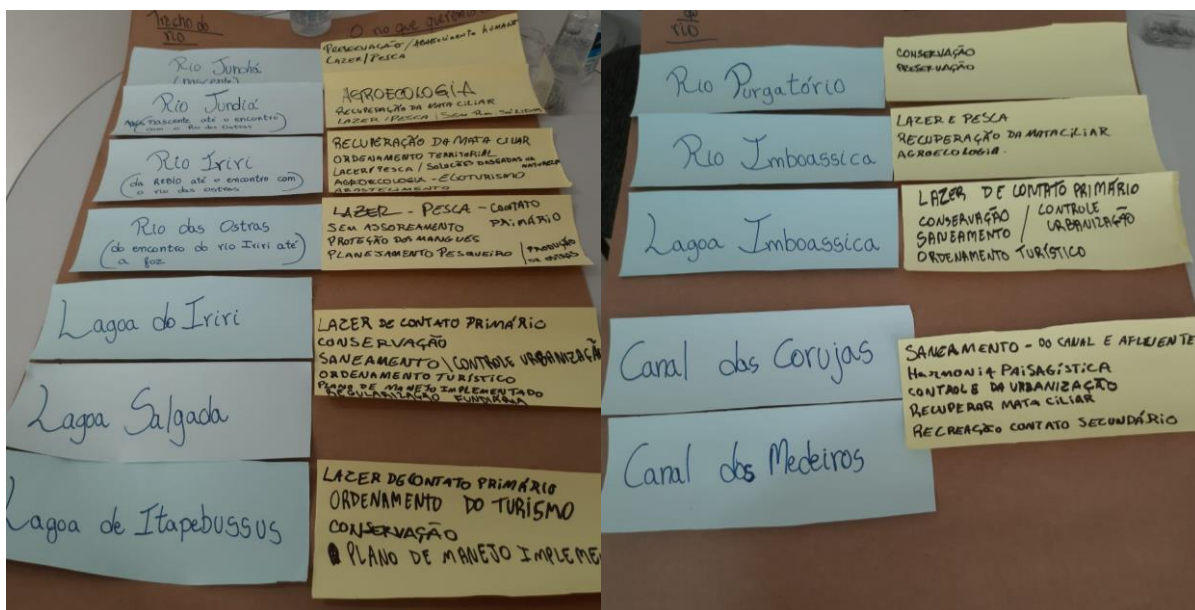 Trecho do
rio
O rio que queremos
Rio Jundiá
(nascente)
PRESERVAÇÃO / ABASTECIMENTO HUMANO
LAZER / PESCA
Rio Jundiá
(após nascente até o encontro
com o Rio das Ostras)
AGROECOLOGIA
RECUPERAÇÃO DA MATA CILIAR
LAZER / PESCA / SEM
Rio Iriri
(da REBIO até o encontro com
o rio das ostras)
RECUPERAÇÃO DA MATA CILIAR
ORDENAMENTO TERRITORIAL
LAZER / PESCA / SOLUÇÕES BASEADAS NA NATUREZA
AGROECOLOGIA - ECOTURISMO
ABASTECIMENTO
Rio das Ostras
(do encontro do rio Iriri até
a foz)
LAZER - PESCA - CONTATO PRIMÁRIO
SEM ASSOREAMENTO
PROTEÇÃO DOS MANGUES
PLANEJAMENTO PESQUEIRO / PRODUÇÃO DE OSTRAS
Lagoa do Iriri
Lagoa Salgada
LAZER DE CONTATO PRIMÁRIO
CONSERVAÇÃO
SANEAMENTO \ CONTROLE URBANIZAÇÃO
ORDENAMENTO TURÍSTICO
PLANO DE MANEJO IMPLEMENTADO
REGULARIZAÇÃO FUNDIÁRIA
Lagoa de Itapebussus
LAZER DE CONTATO PRIMÁRIO
ORDENAMENTO DO TURISMO
CONSERVAÇÃO
PLANO DE MANEJO IMPLEME
rio
Rio Purgatório
CONSERVAÇÃO
PRESERVAÇÃO
Rio Imboassica
LAZER E PESCA
RECUPERAÇÃO DA MATA CILIAR
AGROECOLOGIA.
Lagoa Imboassica
LAZER DE CONTATO PRIMÁRIO
CONSERVAÇÃO / CONTROLE
SANEAMENTO / URBANIZAÇÃO
ORDENAMENTO TURÍSTICO
Canal das Corujas
Canal dos Medeiros
SANEAMENTO - DO CANAL E AFLUENTE
HARMONIA PAISAGÍSTICA
CONTROLE DA URBANIZAÇÃO
RECUPERAR MATA CILIAR
RECREAÇÃO CONTATO SECUNDÁRIO